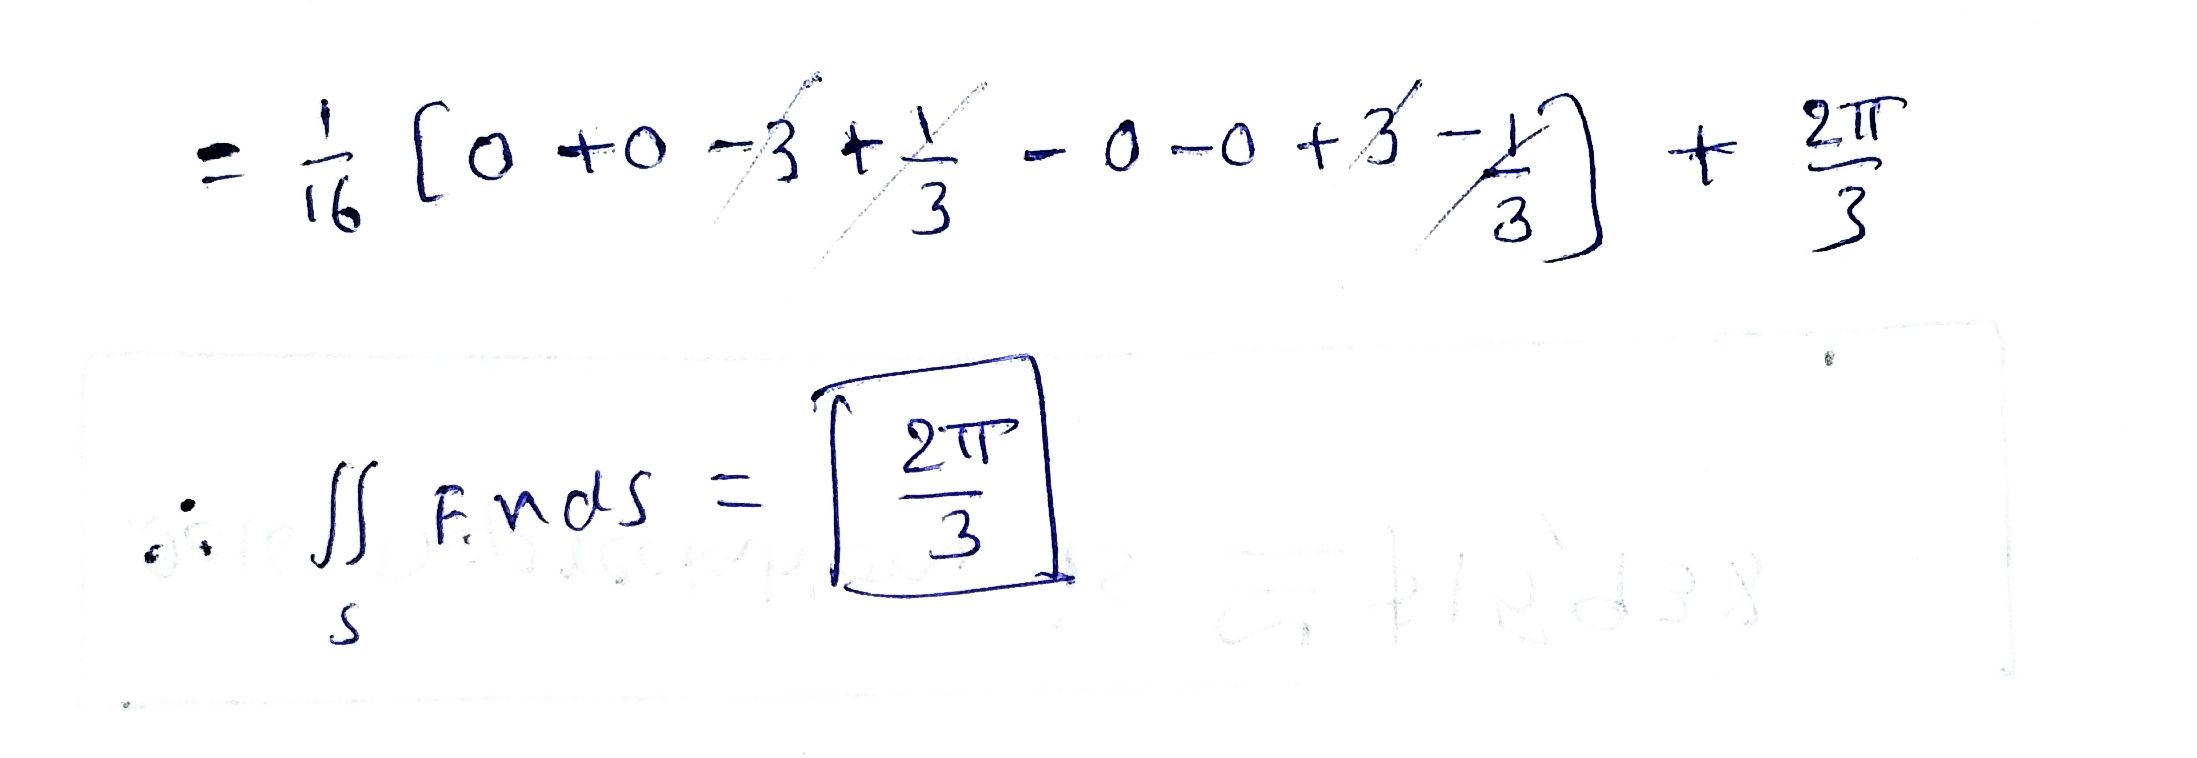 = 1/16 [0 + 0 - 3 + 1/3 - 0 - 0 + 3 - 1/3] + 2π/3
∴ ∬_S F.nds = 2π/3